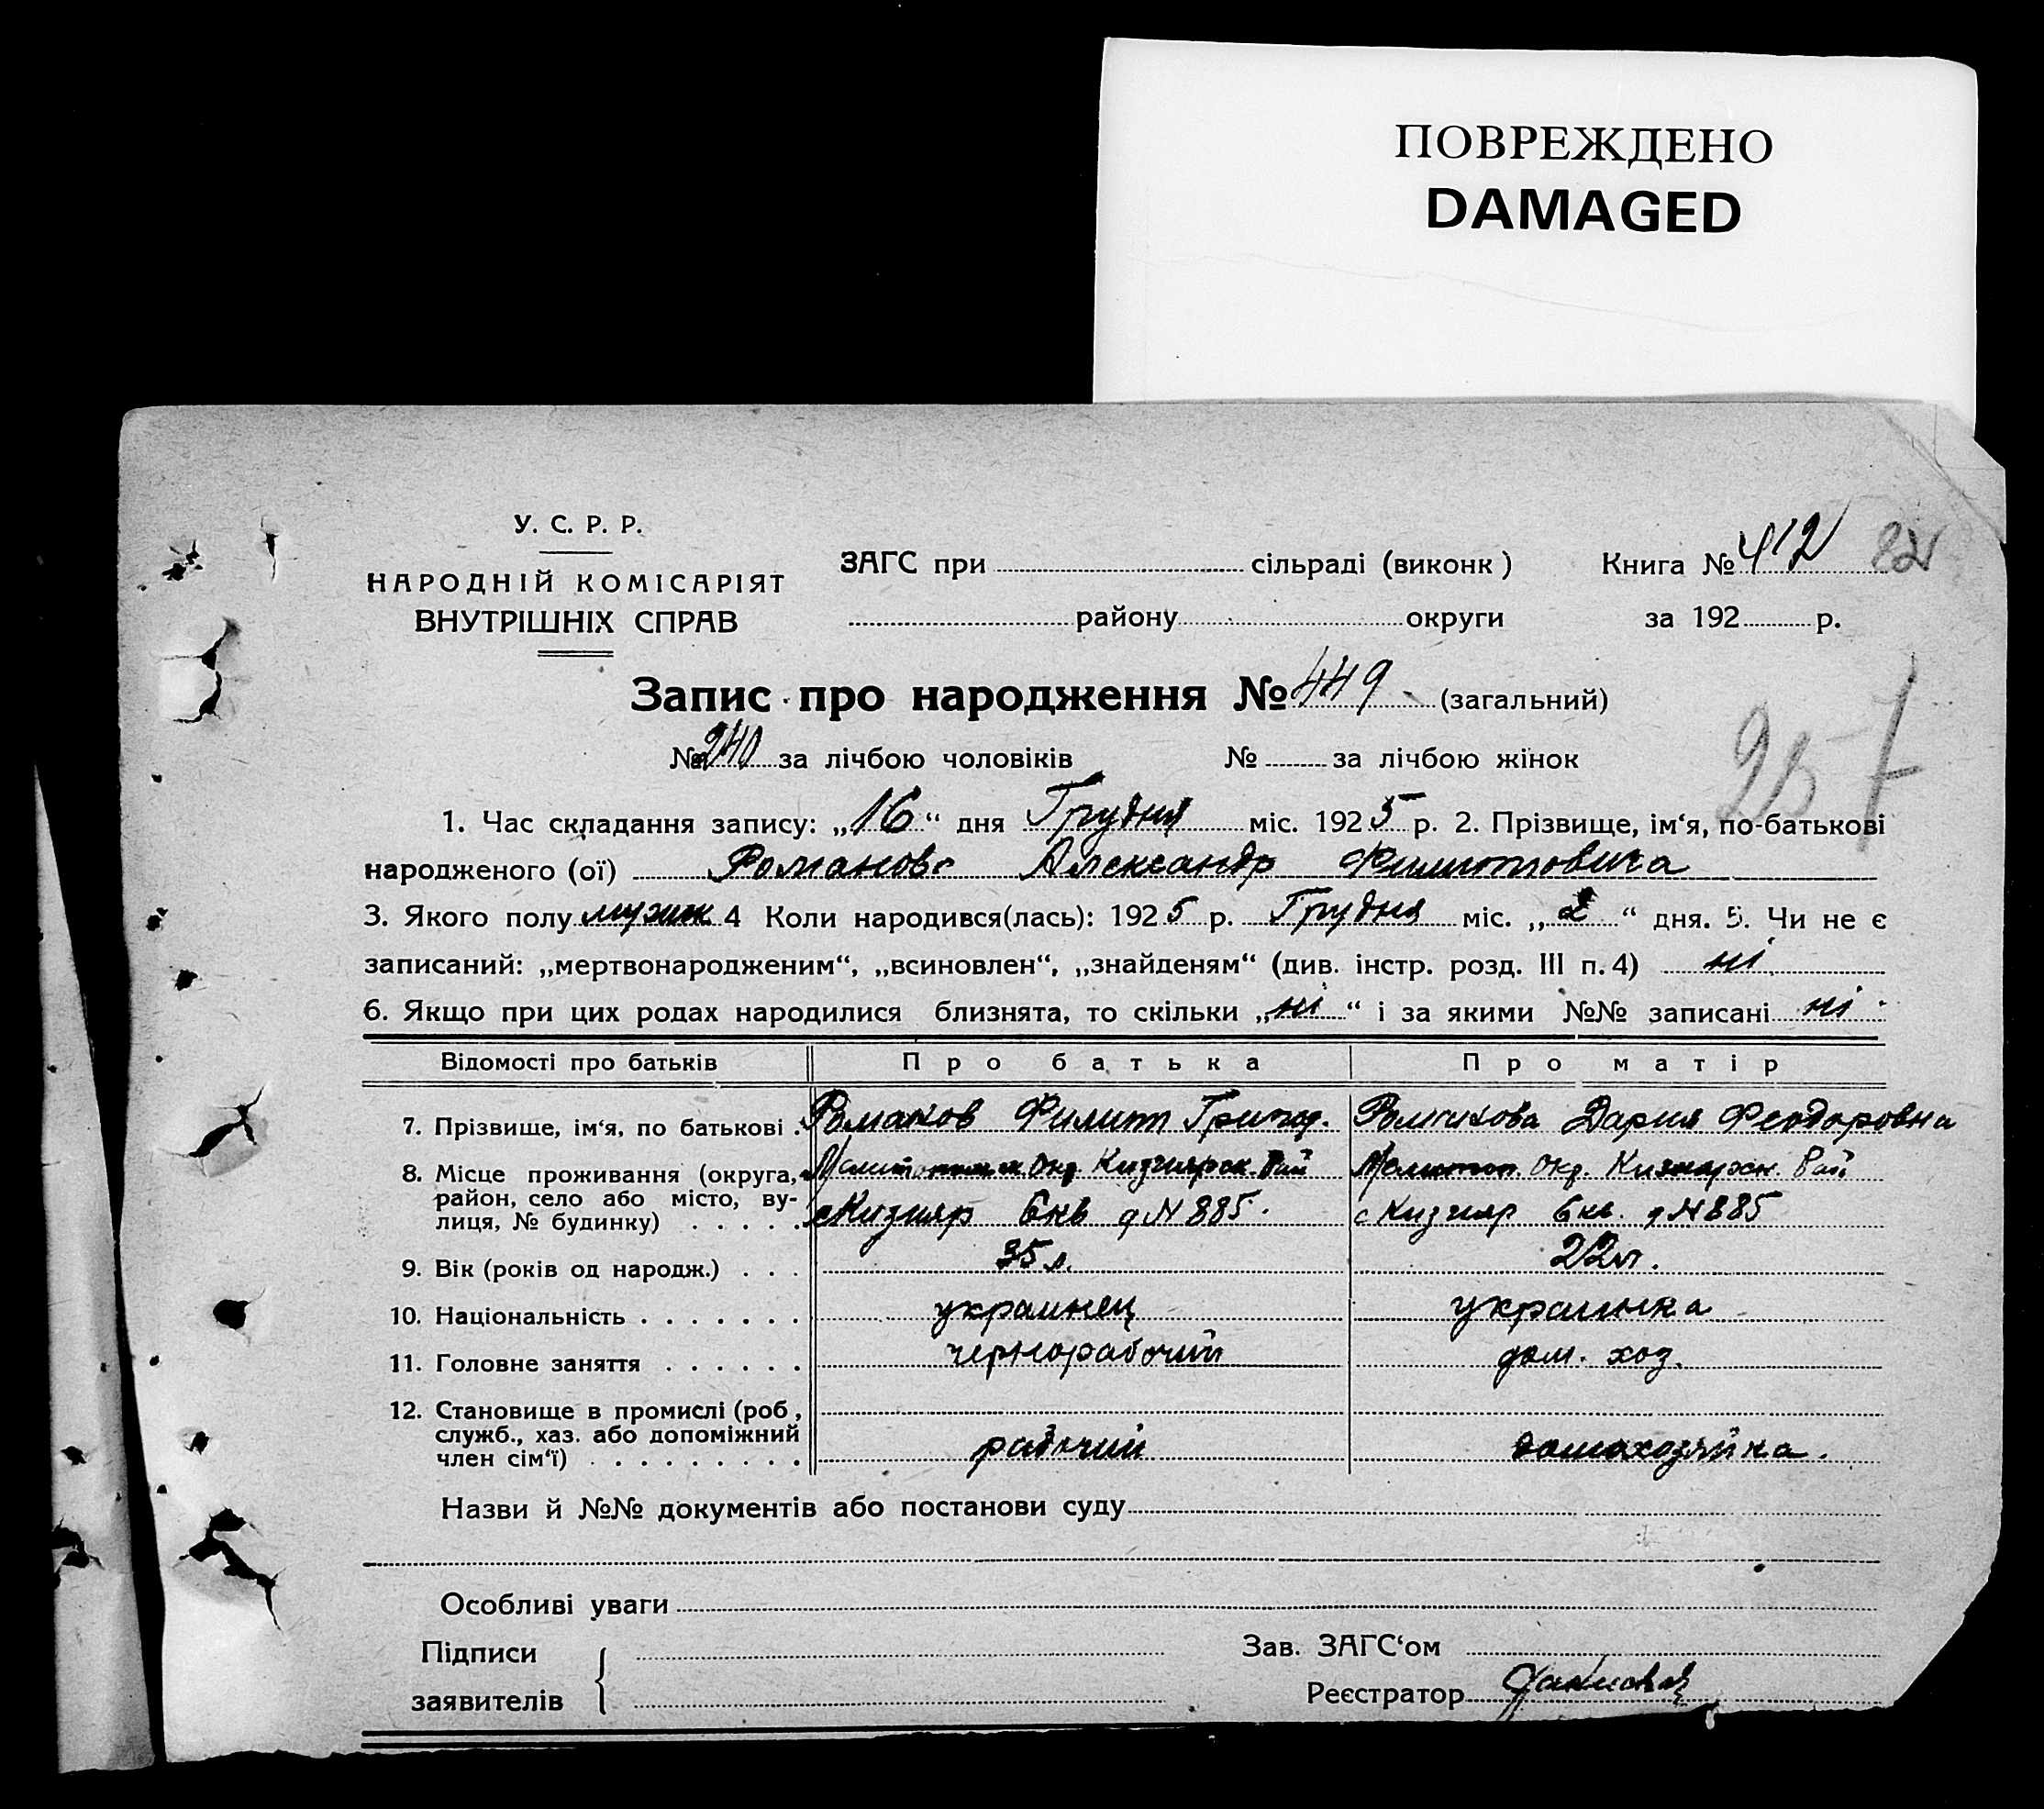 ПОВРЕЖДЕНО
DAMAGED
У. С. Р. Р.
НАРОДНІЙ КОМІСАРІЯТ
ВНУТРІШНІХ СПРАВ
ЗАГС при сільраді (виконк)
Книга № 412 82
району округи
за 192 р.
Запис про народження № 449 (загальний)
№ 240 за лічбою чоловіків № за лічбою жінок
257
1. Час складання запису: „16“ дня Грудня міс. 1925 р. 2. Прізвище, ім‘я, по-батькові
народженого (ої) Романова Александр Филиповича
3. Якого полу мужск 4 Коли народився(лась): 1925 р. Грудня міс. „2“ дня. 5. Чи не є
записаний: „мертвонародженим“, „всиновлен“, „знайденям“ (див. інстр. розд. III п. 4) ні
6. Якщо при цих родах народилися близнята, то скільки „ні“ і за якими №№ записані ні
Відомості про батьків Про батька Про матір
7. Прізвище, ім‘я, по батькові . Романов Филип Григор. Романова Дария Феодоровна
8. Місце проживання (округа, район, село або місто, вулиця, № будинку) . . . . .
Мелитопольск Окр. Кизиярск. Рай Мелитоп. Окр. Кизиярск. Рай.
с Кизияр 6 кв д N 885. с Кизияр 6 кв. д N 885
9. Вік (років од народж.) . . . 35 л. 22 л.
10. Національність . . . . . . . украинец украинка
11. Головне заняття . . . . . . чернорабочий дом. хоз.
12. Становище в промислі (роб, служб., хаз. або допоміжний член сім‘ї) . . . . . . . . . рабочий домохозяйка.
Назви й №№ документів або постанови суду
Особливі уваги
Підписи
заявителів
Зав. ЗАГС‘ом
Реєстратор